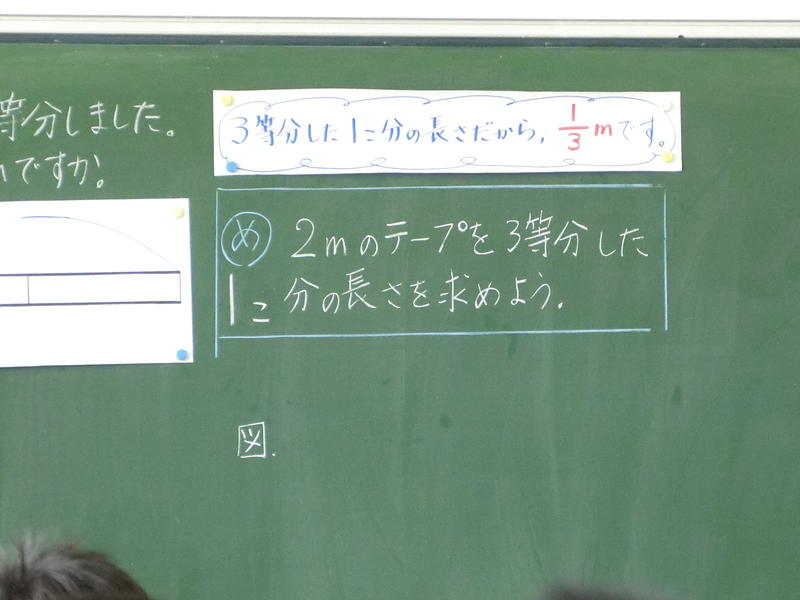 等分しました。
ですか。
3等分した1こ分の長さだから、1/3mです。
め 2mのテープを3等分した
1こ分の長さを求めよう。
図.